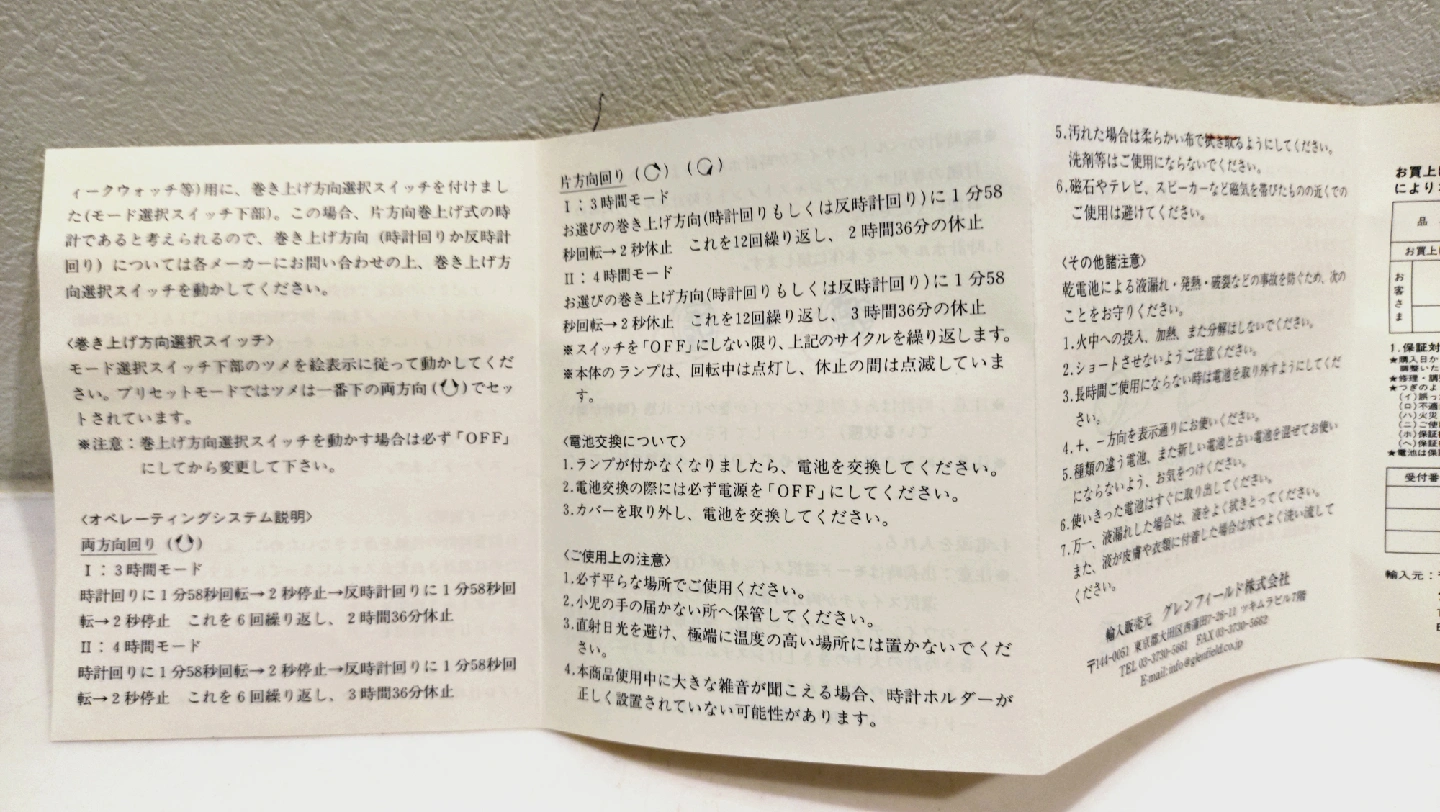 ィークウォッチ等)用に、巻き上げ方向選択スイッチを付けまし
た(モード選択スイッチ下部)。この場合、片方向巻上げ式の時
計であると考えられるので、巻き上げ方向（時計回りか反時計
回り）については各メーカーにお問い合わせの上、巻き上げ方
向選択スイッチを動かしてください。
〈巻き上げ方向選択スイッチ〉
モード選択スイッチ下部のツメを絵表示に従って動かしてくだ
さい。プリセットモードではツメは一番下の両方向( )でセッ
トされています。
※注意：巻上げ方向選択スイッチを動かす場合は必ず「OFF」
にしてから変更して下さい。
〈オペレーティングシステム説明〉
両方向回り ( )
Ⅰ：3時間モード
時計回りに1分58秒回転→2秒停止→反時計回りに1分58秒回
転→2秒停止　これを6回繰り返し、2時間36分休止
Ⅱ：4時間モード
時計回りに1分58秒回転→2秒停止→反時計回りに1分58秒回
転→2秒停止　これを6回繰り返し、3時間36分休止
片方向回り ( ) ( )
Ⅰ：3時間モード
お選びの巻き上げ方向(時計回りもしくは反時計回り)に1分58
秒回転→2秒休止　これを12回繰り返し、2時間36分の休止
Ⅱ：4時間モード
お選びの巻き上げ方向(時計回りもしくは反時計回り)に1分58
秒回転→2秒休止　これを12回繰り返し、3時間36分の休止
※スイッチを「OFF」にしない限り、上記のサイクルを繰り返します。
※本体のランプは、回転中は点灯し、休止の間は点滅していま
す。
〈電池交換について〉
1.ランプが付かなくなりましたら、電池を交換してください。
2.電池交換の際には必ず電源を「OFF」にしてください。
3.カバーを取り外し、電池を交換してください。
〈ご使用上の注意〉
1.必ず平らな場所でご使用ください。
2.小児の手の届かない所へ保管してください。
3.直射日光を避け、極端に温度の高い場所には置かないでくだ
さい。
4.本商品使用中に大きな雑音が聞こえる場合、時計ホルダーが
正しく設置されていない可能性があります。
5.汚れた場合は柔らかい布で拭き取るようにしてください。
洗剤等はご使用にならないでください。
6.磁石やテレビ、スピーカーなど磁気を帯びたものの近くでの
ご使用は避けてください。
〈その他諸注意〉
乾電池による液漏れ・発熱・破裂などの事故を防ぐため、次の
ことをお守りください。
1.火中への投入、加熱、また分解はしないでください。
2.ショートさせないようご注意ください。
3.長時間ご使用にならない時は電池を取り外すようにしてくだ
さい。
4.＋、－方向を表示通りにお使いください。
5.種類の違う電池、また新しい電池と古い電池を混ぜてお使い
にならないよう、お気をつけください。
6.使いきった電池はすぐに取り出してください。
7.万一、液漏れした場合は、液をよく拭きとってください。
また、液が皮膚や衣類に付着した場合は水でよく洗い流して
ください。
輸入販売元　グレンフィールド株式会社
〒144-0051 東京都大田区西蒲田7-26-11 ツキムラビル7階
TEL 03-3730-5661 FAX 03-3730-5662
E-mail:info@glenfield.co.jp
お買上げ
により
品
お買上
お客さま
1.保証対
★購入日か
調整いた
★修理・調
★つぎのよ
(イ)誤っ
(ロ)不適
(ハ)火災
(ニ)ご使
(ホ)保証
(ヘ)保証
★電池は保
受付番
輸入元：